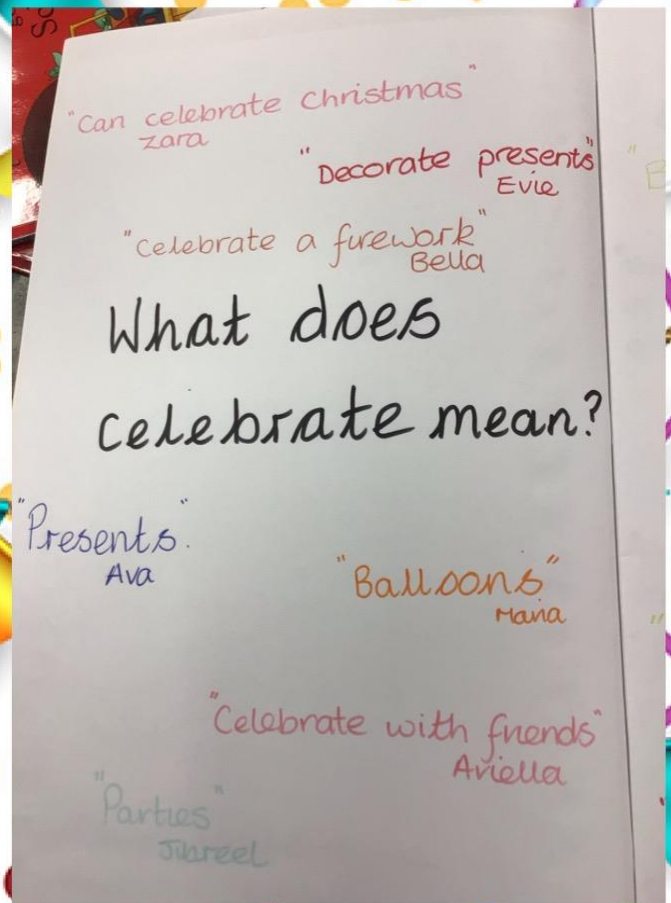 "Can celebrate Christmas"
Zara
"Decorate presents"
Evie
"celebrate a firework"
Bella
What does
celebrate mean?
"Presents".
Ava
"Balloons"
Maria
"Celebrate with friends"
Ariella
"Parties"
Jibreel